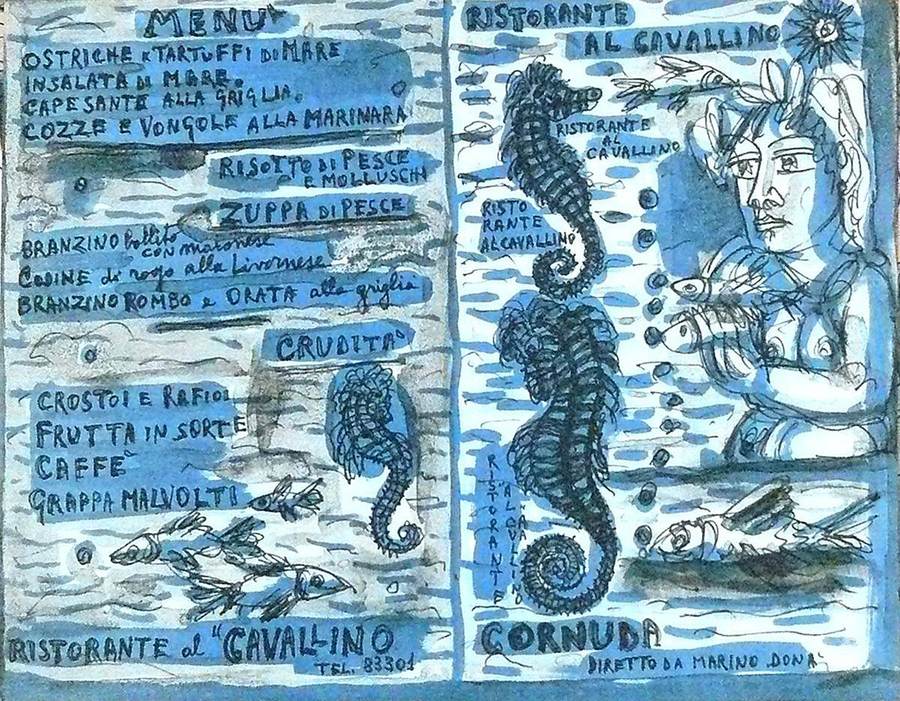 MENU'
OSTRICHE e TARTUFFI DI MARE
INSALATA DI MARE.
CAPESANTE ALLA GRIGLIA.
COZZE E VONGOLE ALLA MARINARA
RISOTTO DI PESCE
E MOLLUSCHI
ZUPPA DI PESCE
BRANZINO bollito
con maionese
CODINE di rospo alla Livornese
BRANZINO ROMBO e ORATA alla griglia
CRUDITA'
CROSTOI E RAFIOI
FRUTTA IN SORTE
CAFFE'
GRAPPA MALVOLTI
RISTORANTE al "CAVALLINO
TEL. 83301
RISTORANTE
AL CAVALLINO
RISTORANTE
AL
CAVALLINO
RISTO
RANTE
AL CAVALLINO
RISTORANTE
AL CAVALLINO
CORNUDA
DIRETTO DA MARINO DONA'